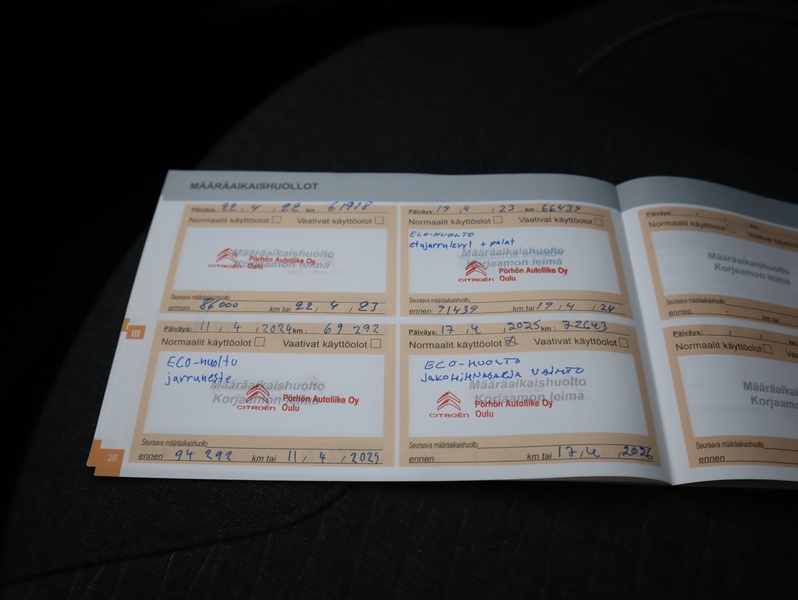 MÄÄRÄAIKAISHUOLLOT
Päiväys: 22 . 4 . 22 km : 61918
Normaalit käyttöolot Vaativat käyttöolot
Määräaikaishuolto
Korjaamon leima
CITROËN Pörhön Autoliike Oy
Oulu
Seuraava määräaikaishuolto
ennen 86000 km tai 22 . 4 . 23
Päiväys: 19 . 4 . 23 km : 66439
Normaalit käyttöolot Vaativat käyttöolot
ECO-HUOLTO
etujarrulevyt + palat
Määräaikaishuolto
Korjaamon leima
CITROËN Pörhön Autoliike Oy
Oulu
Seuraava määräaikaishuolto
ennen 91439 km tai 19 . 4 . 24
III
Päiväys: 11 . 4 . 2024 km : 69 292
Normaalit käyttöolot Vaativat käyttöolot
ECO-huolto
jarruneste
Määräaikaishuolto
Korjaamon leima
CITROËN Pörhön Autoliike Oy
Oulu
Seuraava määräaikaishuolto
ennen 94 292 km tai 11 . 4 . 2025
Päiväys: 17 . 4 . 2025 km :
Normaalit käyttöolot Vaativat käyttöolot
ECO-HUOLTO
Jakohihnasarja VAIHTO
Määräaikaishuolto
Korjaamon leima
CITROËN Pörhön Autoliike Oy
Oulu
Seuraava määräaikaishuolto
ennen km tai 17 . 4 . 2026
26
Päiväys:
Normaalit käyttöolot Vaativat
Määräaikaishuolto
Korjaamon leima
Seuraava määräaikaishuolto
ennen km tai
Päiväys:
Normaalit käyttöolot Vaativat
Määräaikaishu
Korjaamo
Seuraava määräaikaishuolto
ennen